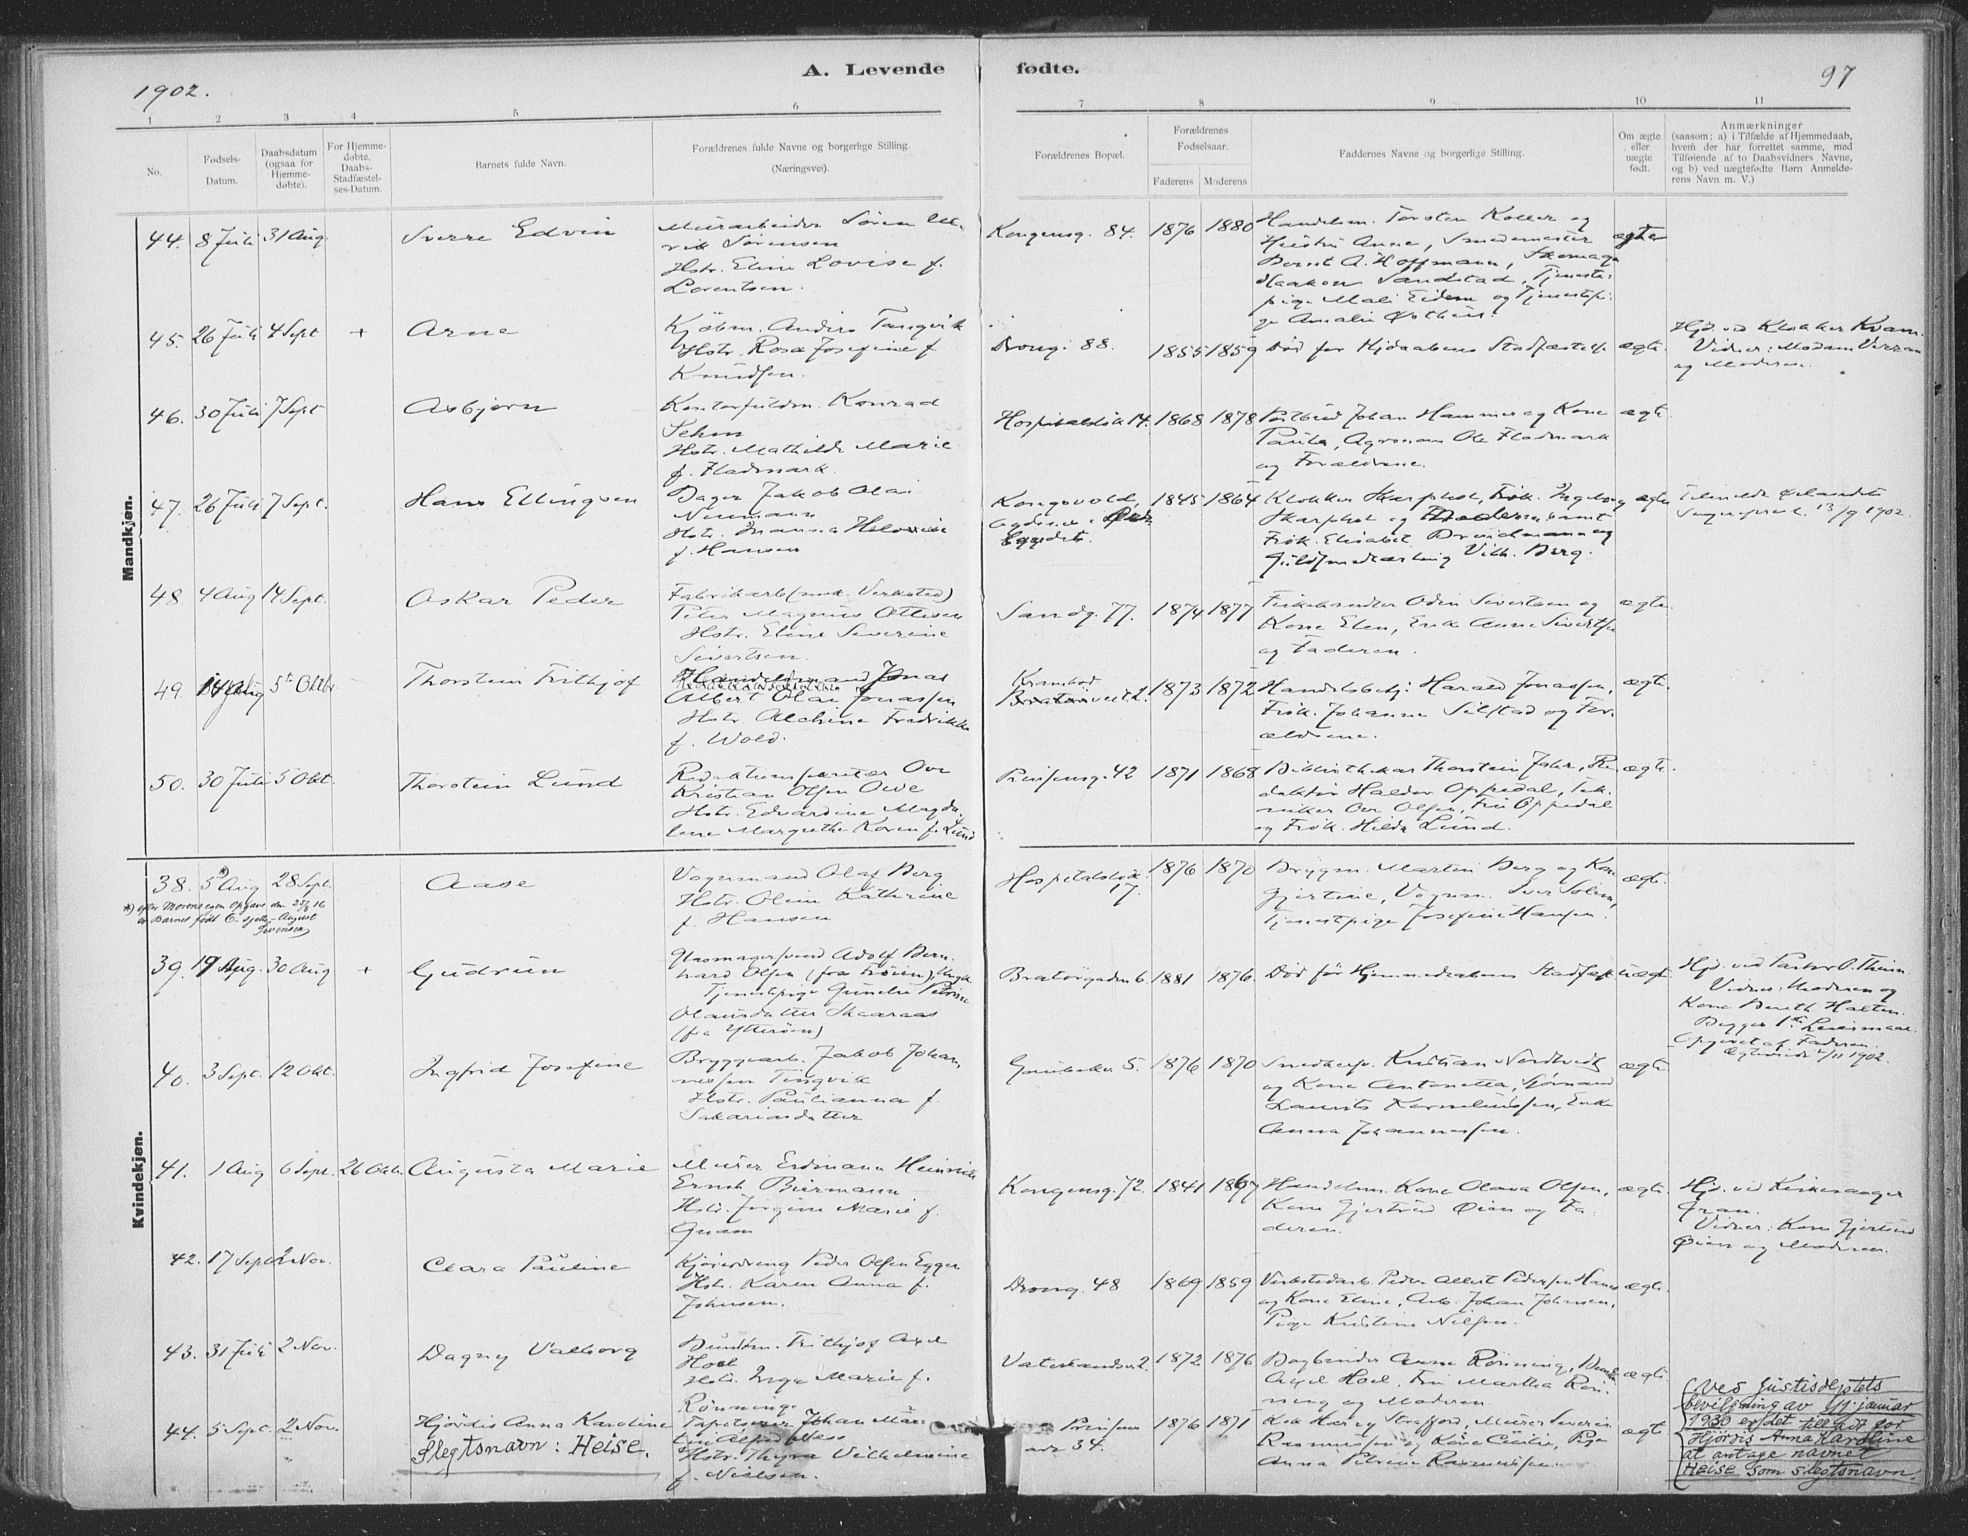 1902.
A. Levende fødte.
97
1 2 3 4 5 6 7 8 9 10 11
No.
Fødsels-
Datum.
Daabsdatum
(ogsaa for
Hjemme-
døbte).
For Hjemme-
døbte,
Daabs-
Stadfæstel-
ses-Datum.
Barnets fulde Navn.
Forældrenes fulde Navne og borgerlige Stilling.
(Næringsvei).
Forældrenes Bopæl.
Forældrenes
Fødselsaar.
Faderens Moderens
Faddernes Navne og borgerlige Stilling.
Om ægte
eller
uægte
født.
Anmærkninger
(saasom: a) i Tilfælde af Hjemmedaab,
hvem der har forrettet samme, med
Tilføiende af to Daabsvidners Navne,
og b) ved uægtefødte Børn Anmelde-
rens Navn m. V.)
Mandkjøn.
44. 8 Juli 31 Aug. Sverre Edvin
Murarbeider Søren Ul-
rik Sørensen
Hstr. Eline Lovise f.
Lorentsen.
Kongensg. 84. 1876 1880
Handelsm. Torsten Koller og
Hustru Anne, Smedemester
Bernt A. Hoffmann, Skomager
Haakon Sandstad, Tjeneste-
pige Mali Eidem og Tjenestepi-
ge Amalie
ægte
45. 26 Juli 4 Sept + Arne
Kjøbm. Anders Tangvik
Hstr. Rosa Josefine f.
Knudsen.
Drong. 88. 1855 1859 Død før Hjdaabens Stadfæstelse ægte.
Hjd. ved Klokker Kvam.
Vidner: Madam
og Moderen.
46. 30 Juli 7 Sept Asbjørn
Kontorfuldm. Konrad
Hstr. Mathilde Marie
f. Fladmark.
Hospitalsløk. 14. 1868 1878
Postbud Johan Hammer og Kone
Paula, Agronom Ole Fladmark
og Forældrene.
ægte
47. 26 Juli 7 Sept. Hans Ellingsen
Bager Jakob Olai
Neumann
f. Hansen
Kongsvold,
1845 1864
Klokker Skarpholt, Frøk. Ingeborg
Skarpholt og
Frøk. Elisabet
Vilh. Berg.
ægte
13/9 1902.
48 4 Aug 14 Sept. Oskar Peder
Fabrikarb (mek. Verksted)
Peter Magnus Ottesen
Hstr. Eline Severine
Sivertsen.
Sandg. 77. 1874 1877
Fiskehandler Odin Sivertsen og
Kone Elen, Enke Anne Sivertsen
og Faderen.
ægte
49. 14 Aug 5te Oktbr. Thorstein Frithjof
Handelsmand Jonas
Albert Olai Jonassen
Hstr. Alchine Fredrikke
f. Wold.
Krambod
2. 1873 1872
Handelsbetj: Harald Jonassen,
Frøk. Johanne Selstad og For-
ældrene.
ægte.
50. 30 Juli 5 Okt. Thorstein Lund
Redaktionssekretær Ove
Kristian Olsen Ovde
Hstr. Edvardine Magda-
lene Margrethe Koren f. Lund
Prinsensg. 42 1871 1868
Bibliothekar Thorstein Jahr, Re-
daktør Halder Oppedal, Tek-
niker Ove Olsen, Fru Oppedal
og Frøk. Hilda Lund.
ægte.
Kvindekjøn.
38. 5 *) Aug 28 Sept. Aase
*) efter Moderens egen Opgave den 25/8 16
er Barnet født 6 - sjette - August
Svensen
Vognmand Olaf Berg
Hstr. Oline Kathrine
f. Hansen
Hospitalsløk.
17. 1876 1870
Bryggm. Martin Berg og Kone
Gjertine, Vognm. Iver Solem,
Tjenestepige Josefine Hansen.
ægte.
39. 19 Aug. 30 Aug + Gudrun
Glasmagersvend Adolf Bern-
hard Olsen (fra Frøien), Ungk.
Tjenestepige Gunelie Petrine
Olausdatter Skaaraas
(fra Ytterøen)
Bratørgaden 6. 1881 1876. Død før Hjemmedaabens Stadfæst. uægte.
Hjd. ved Pastor O. Theim.
Vidner: Moderen og
Kone Bereth Halten.
Begges 1ste Leiermaal.
Opgivet af Faderen.
Ægteviede 2/11 1902.
40. 3 Sept. 12 Okt. Ingfrid Josefine
Bryggearb. Jakob Johan-
nessen Tingvik
Hstr. Paulianna f.
Sakariasdatter
5. 1876 1870
Snedkersv. Kristian Nordtvedt
og Kone Antonetta, Sjømand
Laurits Korneliussen, Enke
Anna Johannessen.
ægte
41. 1 Aug 6 Sept. 26 Oktr. Augusta Marie
Murer Erdmann Heinrich
Ernst Biermann.
Hstr. Jørgine Marie f.
Gram
Kongensg. 72. 1841 1867
Handelsm. Kone Olava Olsen,
Kone Gjertrud Øien og Fa-
deren.
ægte.
Hjd. ved Kirkesanger
Gran.
Vidner: Kone Gjertrud
Øien og Moderen.
42. 17 Sept. 2 Nov. Clara Pauline
Kjøredreng Peder Olsen Eggen
Hstr. Karen Anna f.
Johnsen.
Drong. 48 1869 1859
Verkstedarb. Peder Albert Pedersen
og Kone Eline, Arb. Johan Johnsen,
Pige Kristine Nilsen.
ægte.
43. 31 Juli 2 Nov. Dagny Valborg
Buntm. Frithjof Axel
Hoel
Hstr. Inga Marie f.
Rønning
Vaterlandsv. 2. 1872 1876
Bogbinder Arne Rønning,
Axel Hoel, Fru Martha Røn-
ning og Moderen
ægte.
44. 5 Sept. 2 Nov. Hjørdis Anna Karoline
Slegtsnavn: Heise.
Tapetserer Johan Mar-
tin Alfred Næss
Hstr. Thyra Vilhelmine
f. Nielsen.
Prinsens
34. 1876 1871
Murer Severin
Rasmussen og Kone Cecilie, Pige
Anna Petrine Rasmussen.
ægte
Ved Justisdeptets
bevillgning av 11 januar
1930 er det tilladt for
Hjørdis Anna Karoline
at antage navnet
Heise som slegtsnavn.